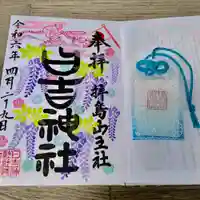 奉拝 拝島山王社
日吉神社
令和六年 四月二十九日